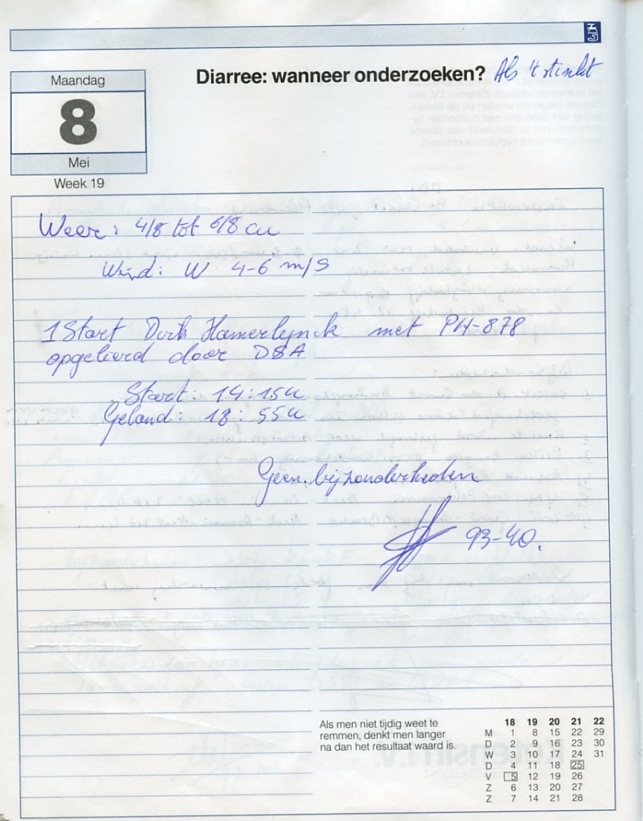 Maandag
8
Mei
Week 19
Diarree: wanneer onderzoeken? Als 't stinkt
Weer: 4/8 tot 6/8 cu
Wind: W 4-6 m/s
1 Start Dirk Hamerlynck met PH-878
opgelierd door DBA
Start: 14:15u
Geland: 18:55u
Geen bijzonderheden
93-40.
Als men niet tijdig weet te
remmen, denkt men langer
na dan het resultaat waard is.
18 19 20 21 22
M 1 8 15 22 29
D 2 9 16 23 30
W 3 10 17 24 31
D 4 11 18 25
V 5 12 19 26
Z 6 13 20 27
Z 7 14 21 28